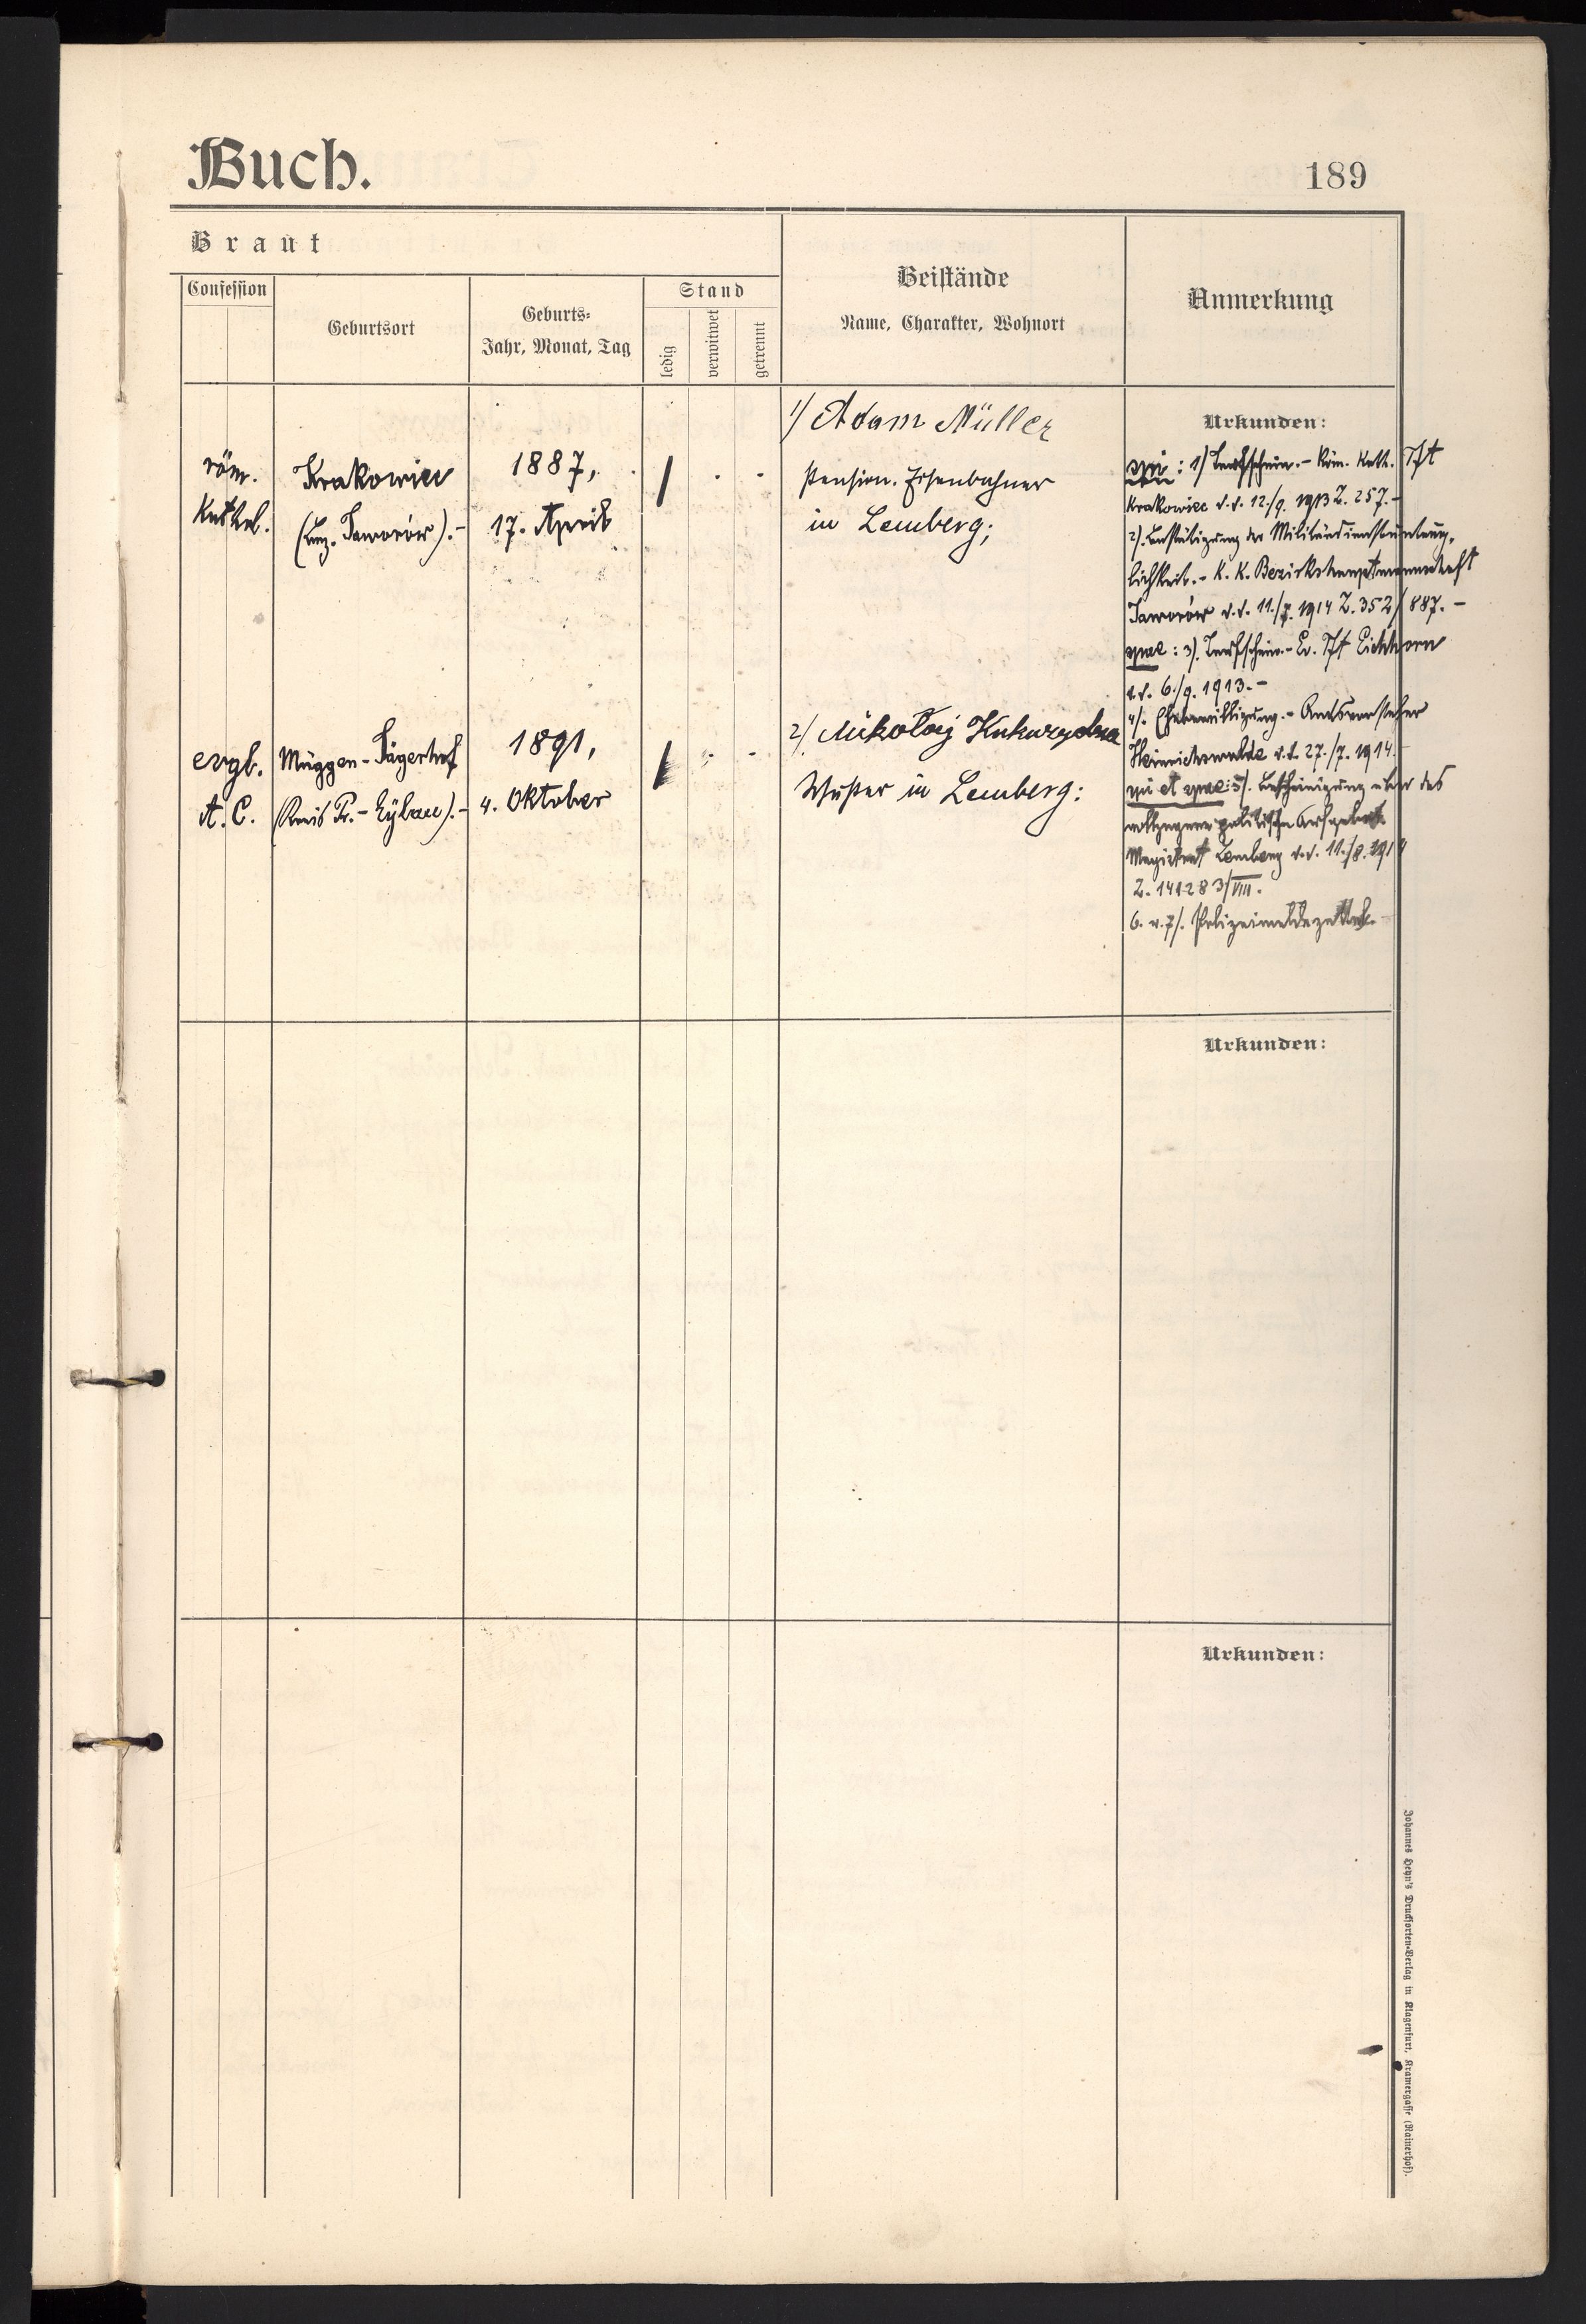 Buch.
189
Braut
Confession
Geburtsort
Geburts-
Jahr, Monat, Tag
Stand
ledig
verwitwet
getrennt
Beistände
Name, Charakter, Wohnort
Anmerkung
röm.
Kathol.
Krakowiec
(Bez. Jaworów).-
1887,
17. April
1) Adam Müller
pension. Eisenbahner
in Lemberg;
Urkunden:
spi: 1) Taufschein.- Röm. Kath. Pft
Krakowiec d.d. 12./9. 1913 Z. 257.-
2). Bestätigung der Militärdienstuntaug-
lichkeit.- K. K. Bezirkshauptmannschaft
Jaworów d.d. 11./7. 1914 Z. 352/887.-
spae: 3). Taufschein.- Ev. Pft Eichhorn
d.d. 6./9. 1913.-
4). Ehebewilligung.- Amtsvorsteher
Heinrichswalde d.d. 27./7. 1914.-
spi et spae: 5). Bescheinigung über das
vollzogene politische Aufgebot.
Magistrat Lemberg d.d. 11./8. 1914
Z. 141283/VIII.
6. u. 7). Polizeimeldezettel.-
evgl.
A. C.
Müggen-Jägerhof
(Kreis Pr.-Eylau).-
1891,
4. Oktober
2) Mikołaj Kukurydza
in Lemberg:
Urkunden:
Urkunden:
Johannes Heyn's Drucksorten-Verlag in Klagenfurt, Kramergasse (Rainerhof).